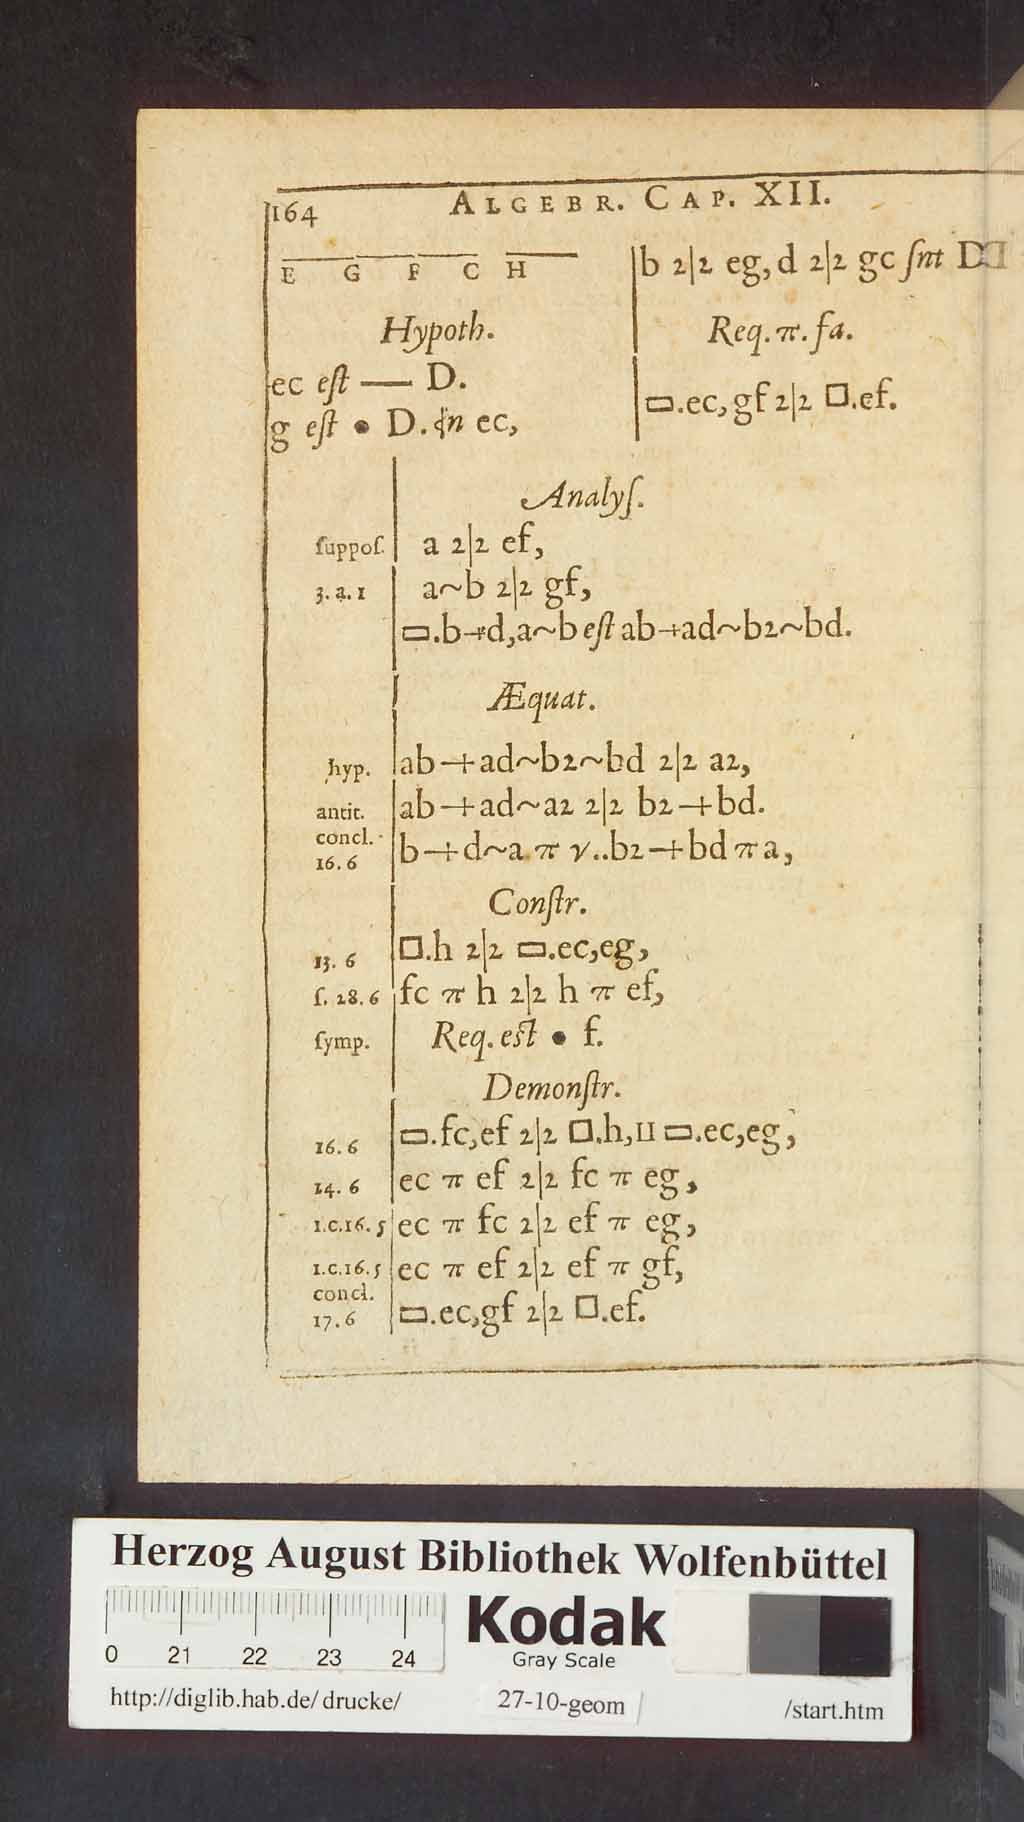 164 ALGEBR. CAP. XII.
E G F C H
Hypoth.
ec eſt — D.
g eſt • D. in ec,
b 2|2 eg, d 2|2 gc ſnt D
Req. π. fa.
▭.ec, gf 2|2 □.ef.
Analyſ.
ſuppoſ. a 2|2 ef,
3. a. 1 a~b 2|2 gf,
▭.b+d,a~b eſt ab+ad~b2~bd.
Æquat.
hyp. ab+ad~b2~bd 2|2 a2,
antit. ab+ad~a2 2|2 b2+bd.
concl.
16. 6 b+d~a π ν..b2+bd π a,
Conſtr.
13. 6 □.h 2|2 ▭.ec,eg,
ſ. 28. 6 fc π h 2|2 h π ef,
ſymp. Req. eſt • f.
Demonſtr.
16. 6 ▭.fc,ef 2|2 □.h,II ▭.ec,eg,
14. 6 ec π ef 2|2 fc π eg,
1.c.16.5 ec π fc 2|2 ef π eg,
1.c.16.5 ec π ef 2|2 ef π gf,
concl.
17. 6 ▭.ec,gf 2|2 □.ef.
Herzog August Bibliothek Wolfenbüttel
0 21 22 23 24
Kodak
Gray Scale
http://diglib.hab.de/drucke/ 27-10-geom /start.htm